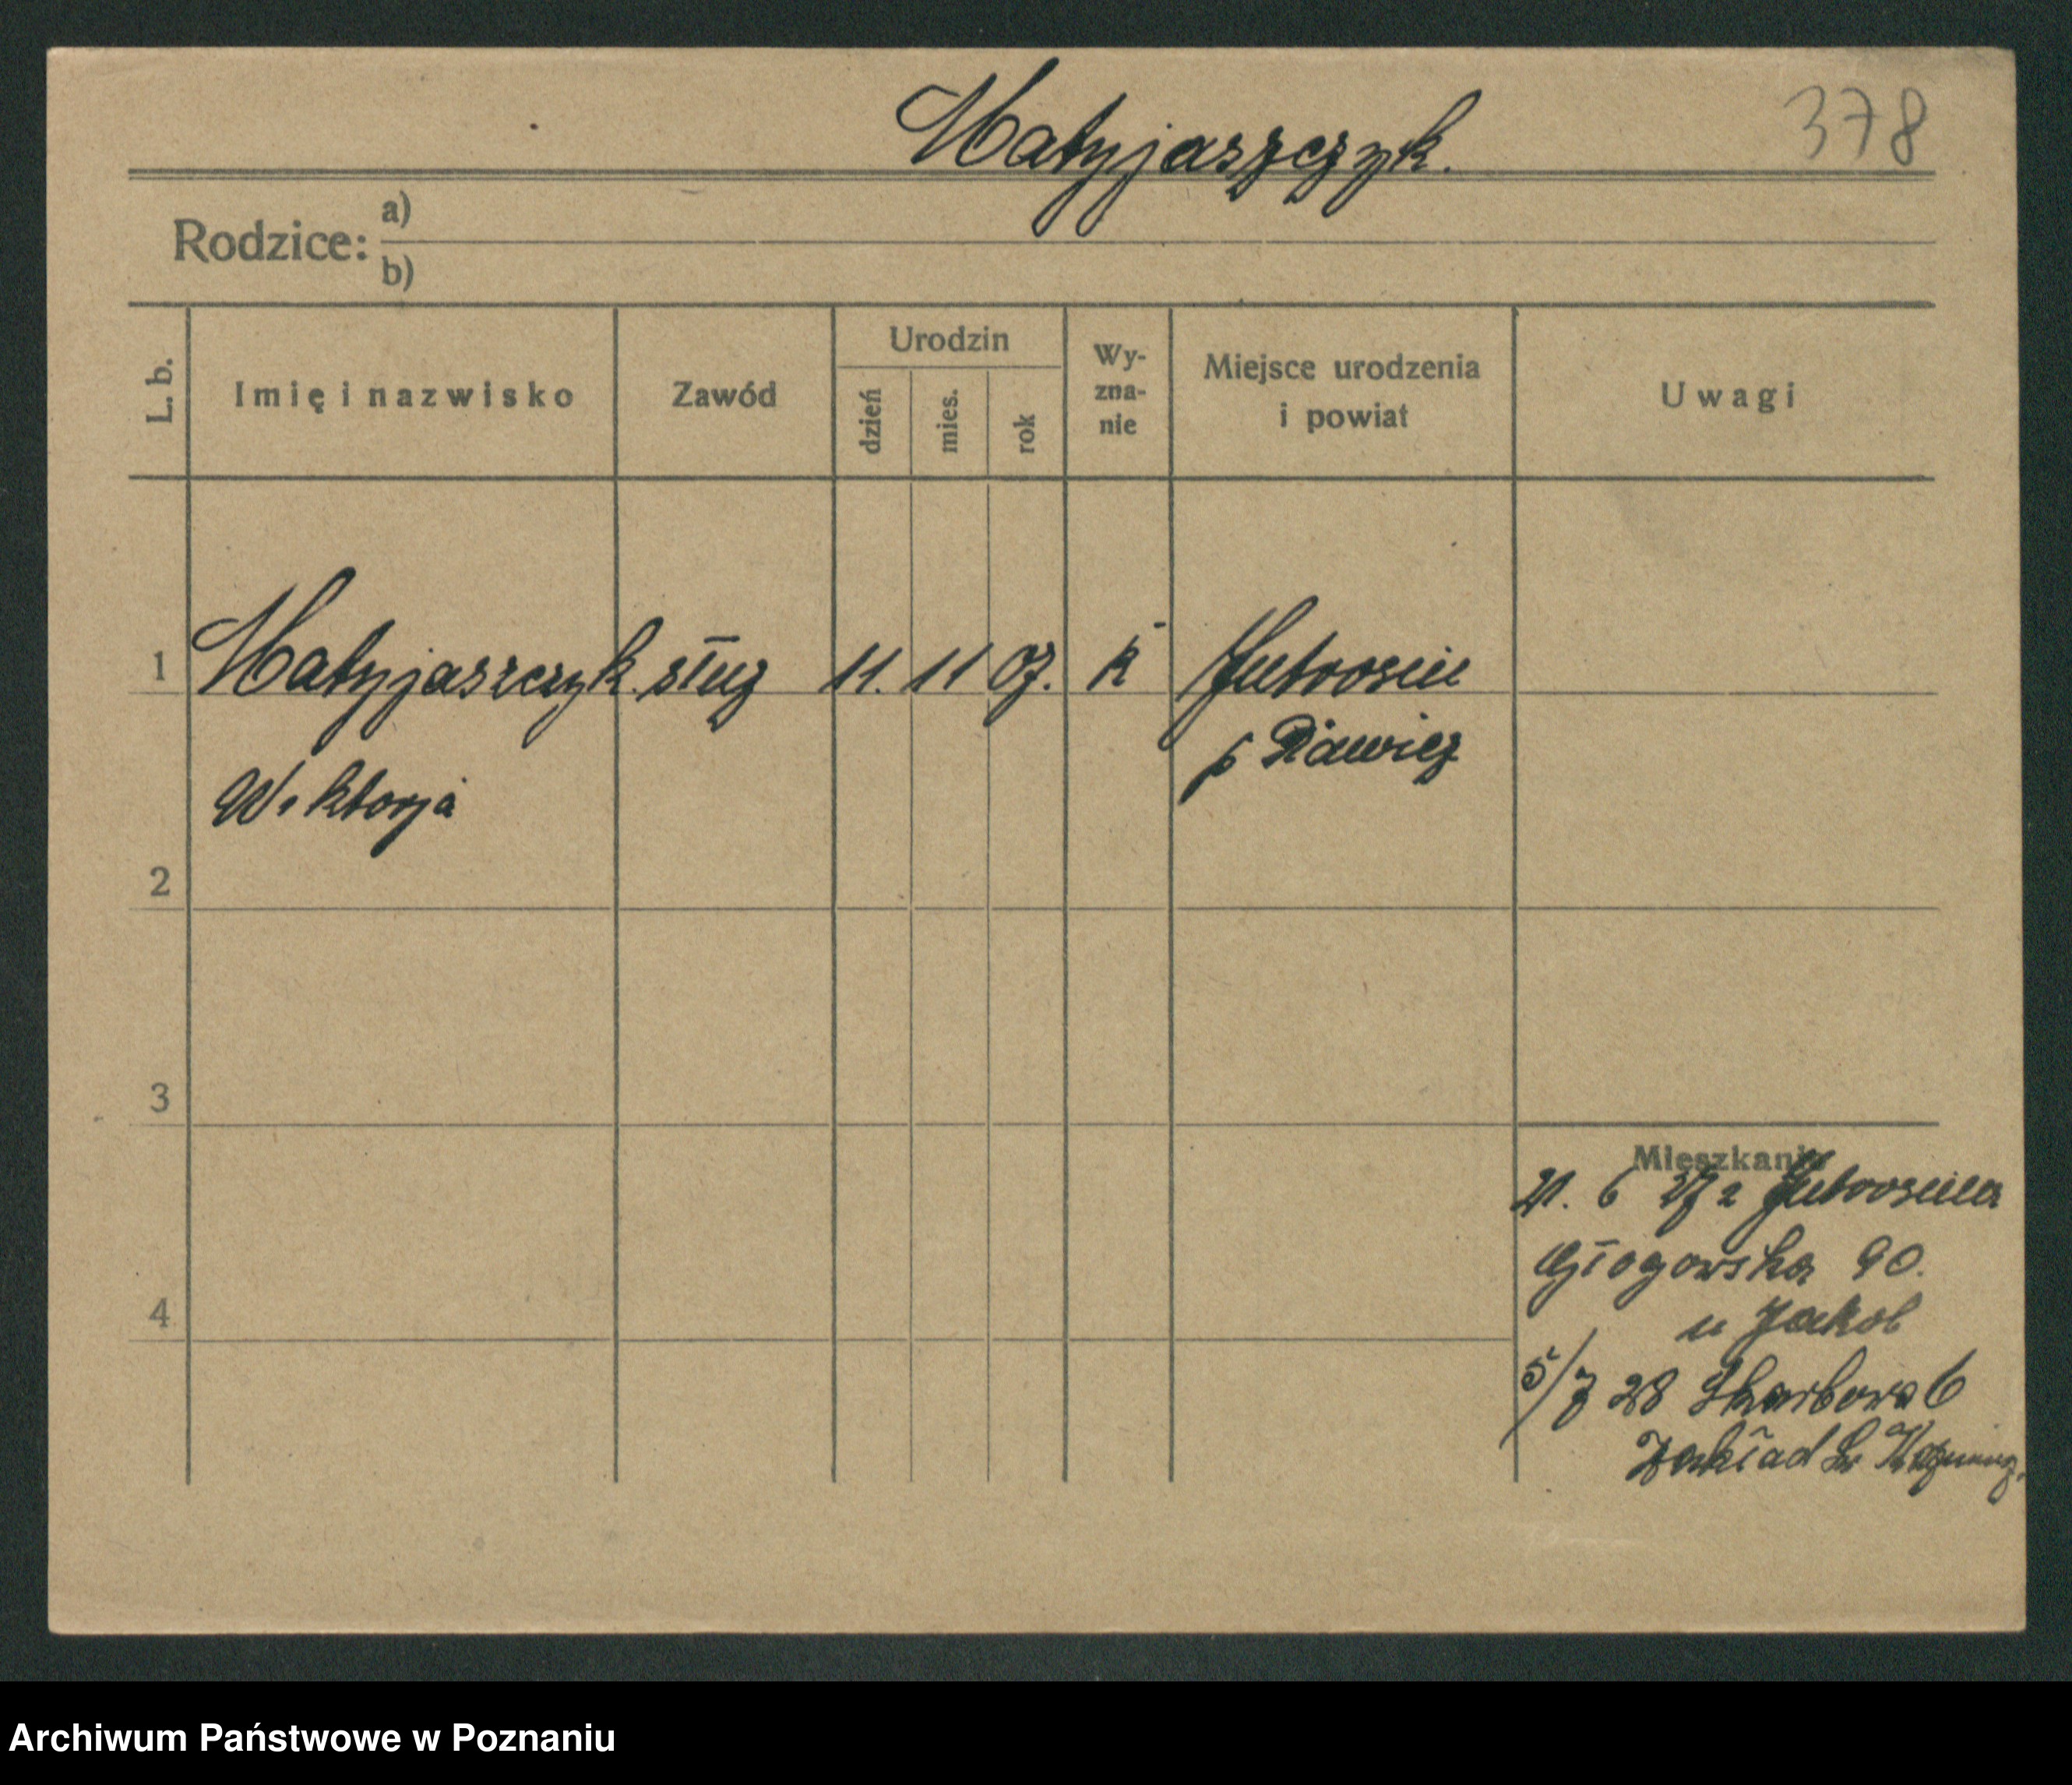 Matyjaszczyk.
378
Rodzice:
a)
b)
L. b.
Imię i nazwisko
Zawód
Urodzin
dzień
mies.
rok
Wy-
zna-
nie
Miejsce urodzenia
i powiat
Uwagi
1 Matyjaszczyk służ 11. 11 07. k Jutrosin
p Rawicz
Wiktorja
2
3
4
Mieszkanie
21. 6 27 z Jutrosina
Głogowska 90.
u Jakob
5/7 28 Skarbowa 6
Zakład św
Archiwum Państwowe w Poznaniu